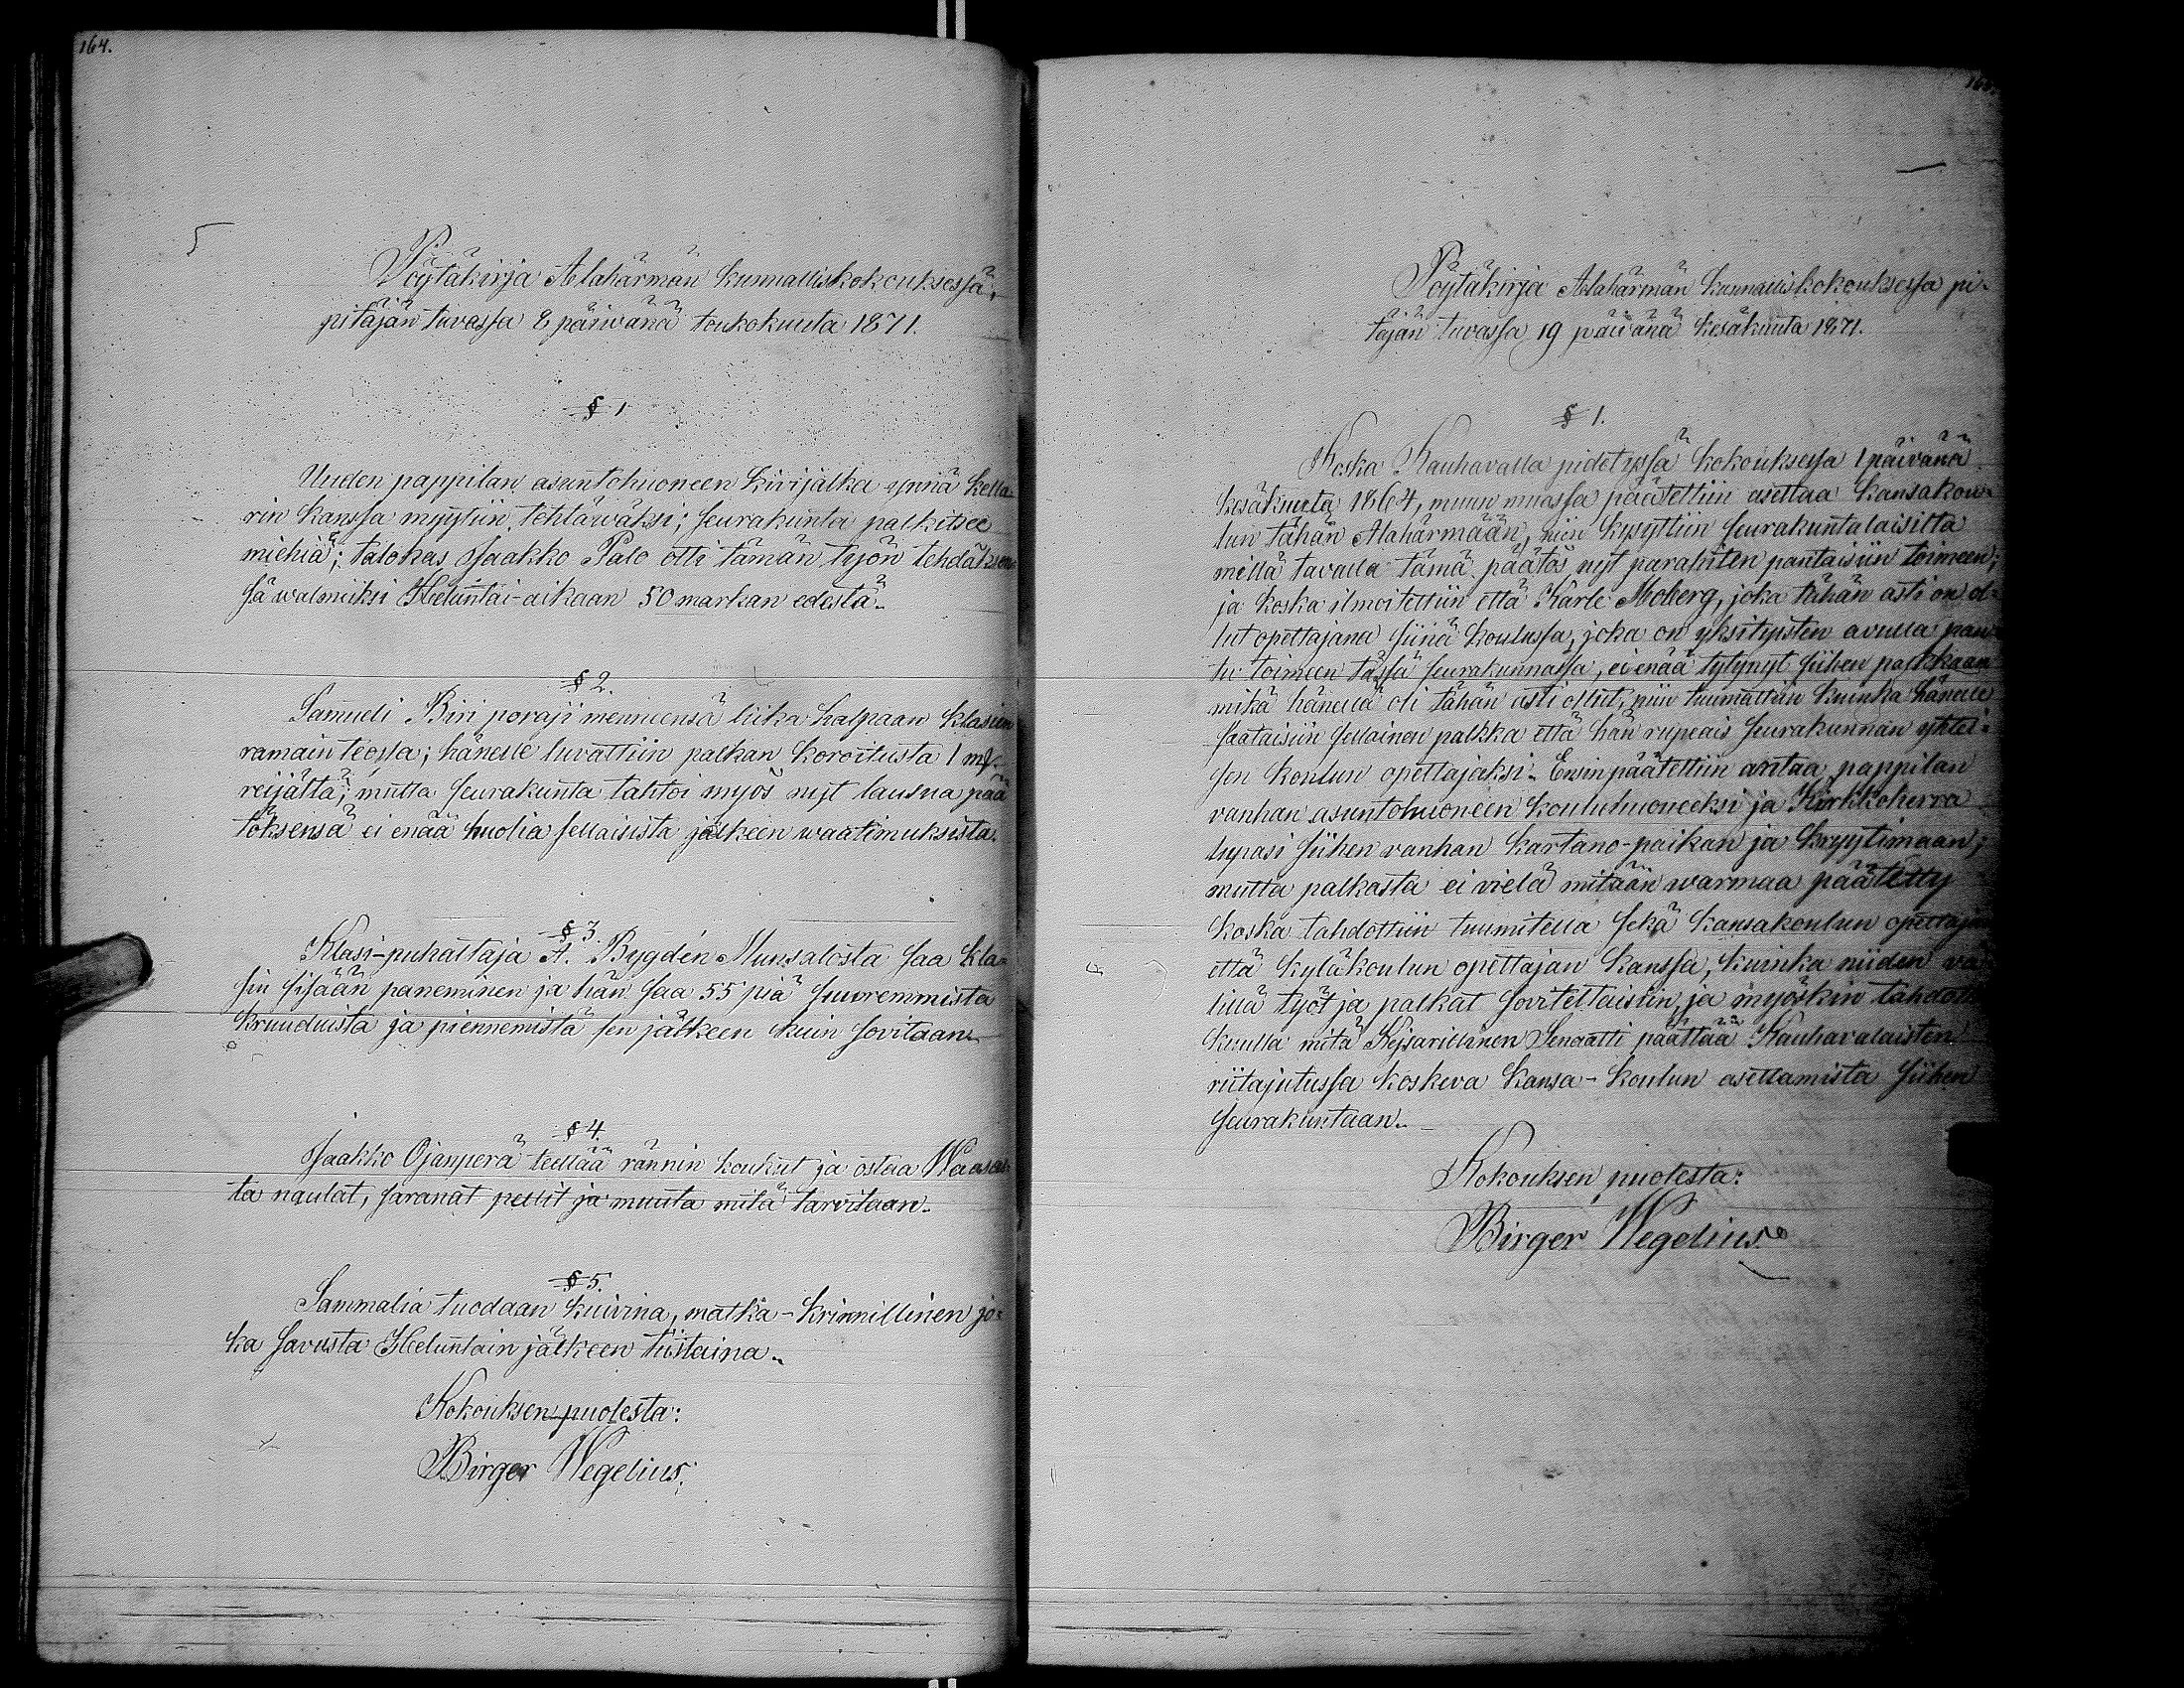 164.
Pöytäkirja Alahärmän kunnalliskokouksessa,
pitäjän tuvassa 8 päiwänä toukokuuta 1871.
§ 1
Uuden pappilan asuntohuoneen kivijalka ynnä kella-
rin kanssa myytiin tehtäwäksi; seurakunta palkitsee
miehiä; talokas Jaakko Palo otti tämän työn tehdäksen-
sä walmiiksi Heluntai-aikaan 50 markan edestä.
§ 2.
Samueli Biri poraji menneensä liika halpaan klasin
ramain teossa; hänelle luvattiin palkan koroitusta 1 mk
reijältä; mutta seurakunta tahtoi myös nyt lausua pää
töksensä ei enää huolia sellaisista jälkeen waatimuksista.
§ 3.
Klasi-puhaltaja A. Bygdén Munsalosta saa kla-
sin sisään paneminen ja hän saa 55 piä suuremmista
kruuduista ja piennemistä sen jälkeen kuin sovitaan.
§ 4.
Jaakko Ojanperä teettää rännin koukut ja ostaa Waasas-
ta naulat, saranat pellit ja muuta mitä tarvitaan.
§ 5.
Sammalia tuodaan kuivina, matka-krinnillinen jo-
ka savusta Heluntain jälkeen tiistaina.
Kokouksen puolesta:
Birger Wegelius.
165.
Pöytäkirja Alahärmän kunnalliskokouksessa pi-
täjän tuvassa 19 päivänä kesäkuuta 1871.
§ 1.
Koska Kauhavalla pidetyssä kokouksessa 1 päivänä
kesäkuuta 1864, muun muassa päätettiin asettaa kansakou-
lun tähän Alahärmään, niin kysyttiin seurakuntalaisilta
millä tavalla tämä päätös nyt parahiten pantaisiin toimeen;
ja koska ilmoitettiin että Kârle Moberg, joka tähän asti on ol-
lut opettajana siinä koulussa, joka on yksityisten avulla pan-
tu toimeen tässä seurakunnassa, ei enää tytynyt siihen palkkaan
mikä hänellä oli tähän asti ollut, niin tuumattiin kuinka hänelle
saataisiin sellainen palkka että hän rupeais seurakunnan yhtei-
sen koulun opettajaksi. Ensin päätettiin antaa pappilan
vanhan asuntohuoneen kouluhuoneeksi ja Kirkkoherra
lupasi siihen vanhan kartano-paikan ja kryytimaan;
mutta palkasta ei vielä mitään warmaa päätetty
koska tahdottiin tuumitella sekä kansakoulun opettajan
että kyläkoulun opettajan kanssa, kuinka niiden vä-
lillä työt ja palkat sovitettaisiin, ja myöskin tahdott
kuulla mitä Kejsarillinen Senaatti päättää Kauhavalaisten
riitajutussa koskeva kansa-koulun asettamista siihen
seurakuntaan.
Kokouksen puolesta:
Birger Wegelius.